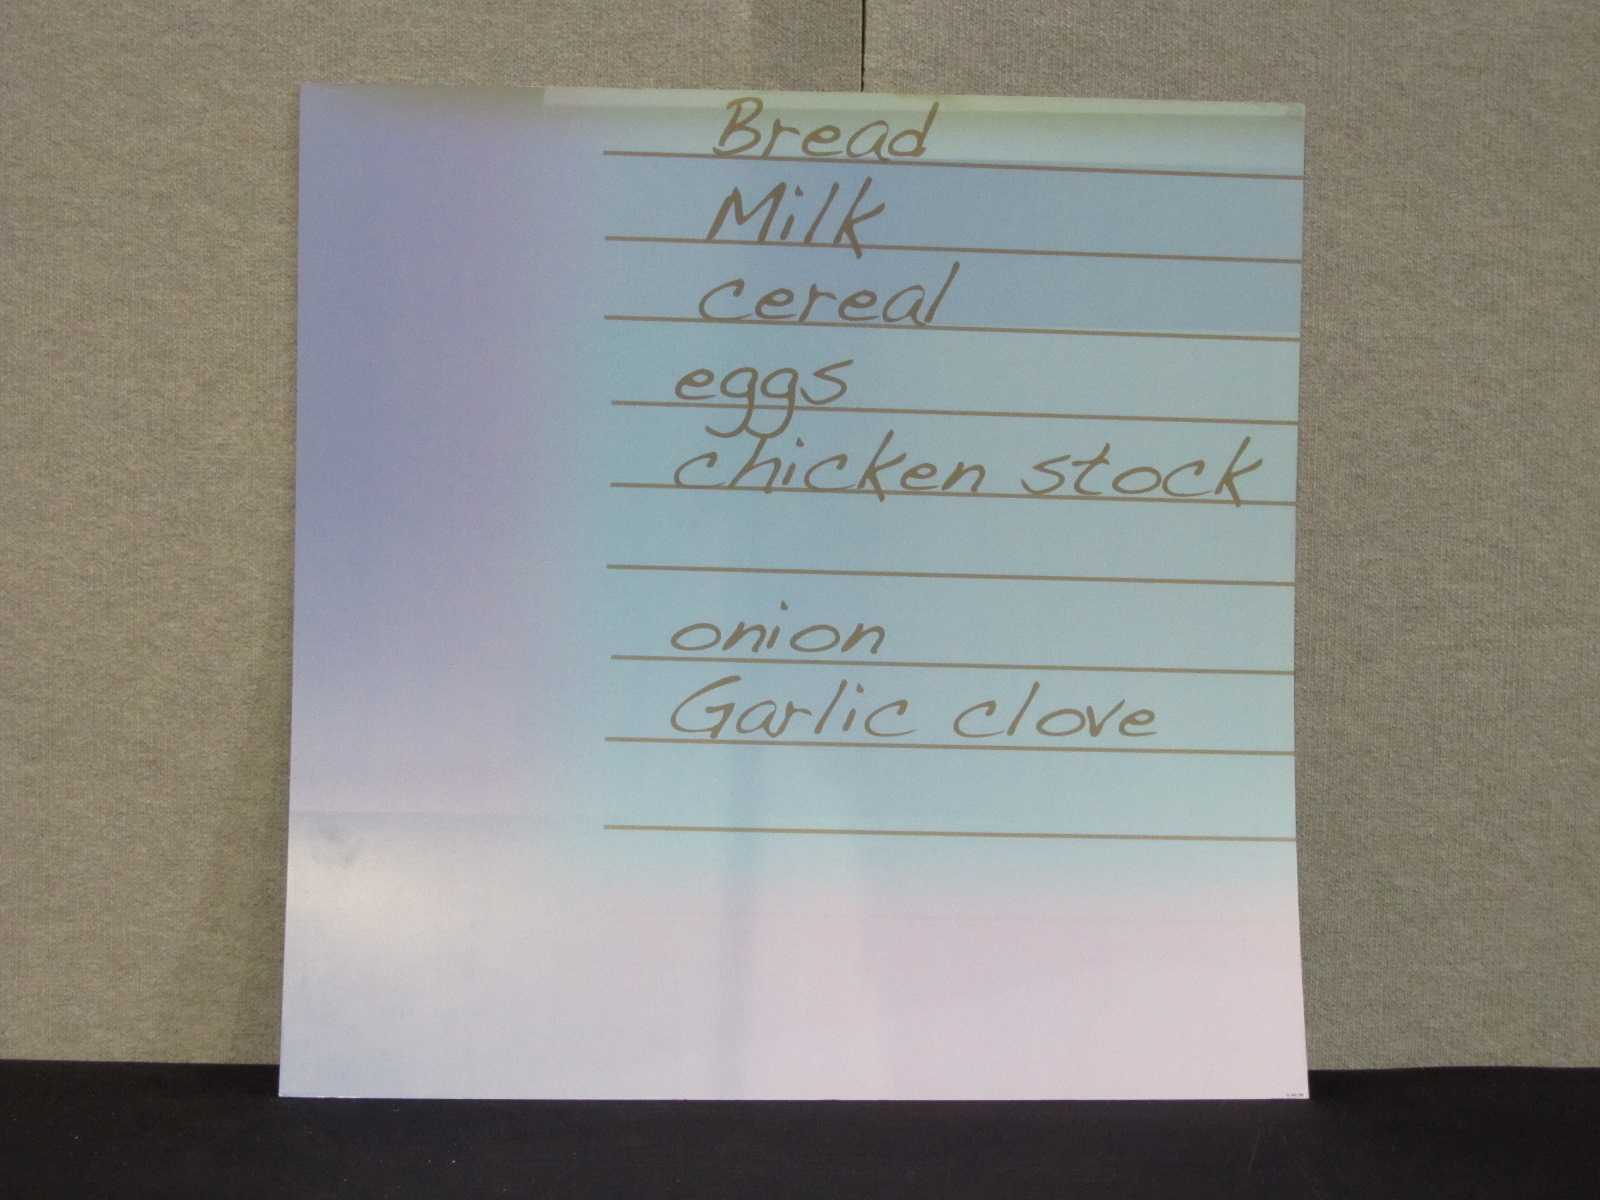 Bread
Milk
cereal
eggs
chicken stock
onion
Garlic clove